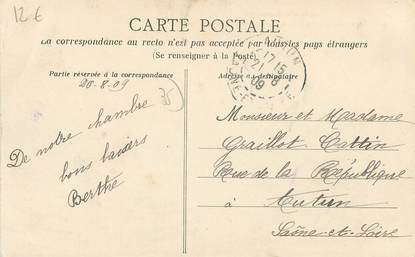 12€
CARTE POSTALE
La correspondance au recto n'est pas acceptée par tous les pays étrangers
(Se renseigner à la Poste)
Partie réservée à la correspondance
Adresse du destinataire
20-8-09
De notre chambre
bons baisers
Berthe
17 15
21 - 8
09
Monsieur et Madame
Graillot-Cattin
Rue de la République
à Autun
Saône-et-Loire